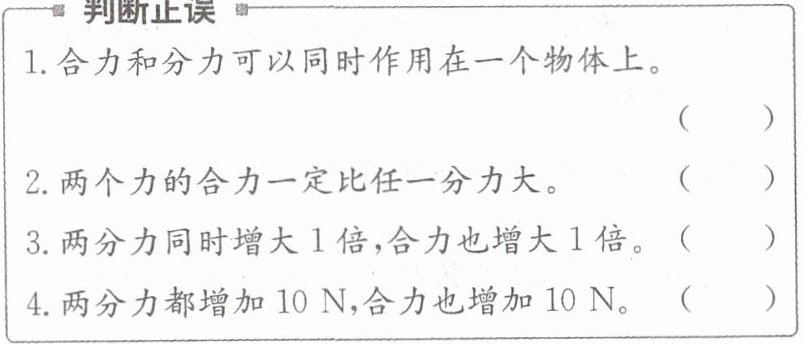 判断正误
1. 合力和分力可以同时作用在一个物体上。
(  )
2. 两个力的合力一定比任一分力大。 (  )
3. 两分力同时增大 1 倍,合力也增大 1 倍。 (  )
4. 两分力都增加 10 N,合力也增加 10 N。 (  )